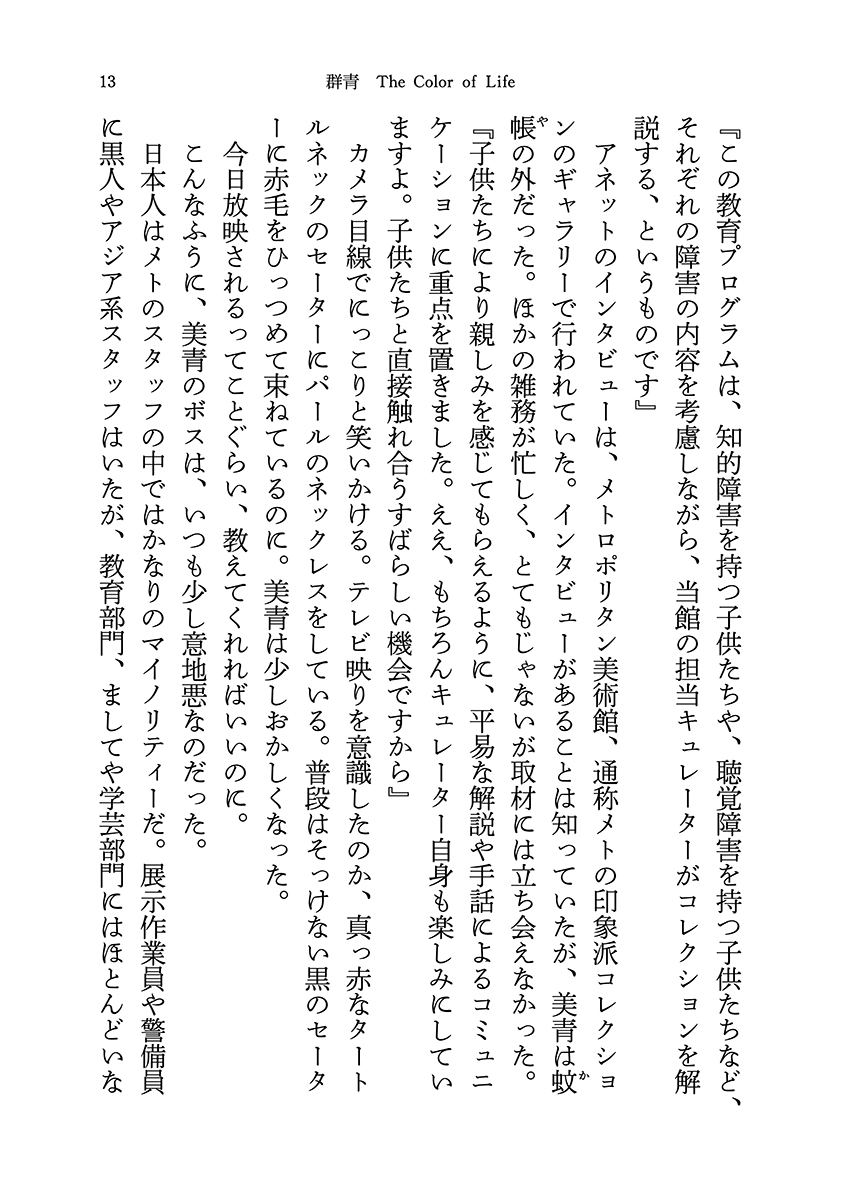 13
群青　The Color of Life
『この教育プログラムは、知的障害を持つ子供たちや、聴覚障害を持つ子供たちなど、
それぞれの障害の内容を考慮しながら、当館の担当キュレーターがコレクションを解
説する、というものです』
　アネットのインタビューは、メトロポリタン美術館、通称メトの印象派コレクショ
ンのギャラリーで行われていた。インタビューがあることは知っていたが、美青は蚊か
帳やの外だった。ほかの雑務が忙しく、とてもじゃないが取材には立ち会えなかった。
『子供たちにより親しみを感じてもらえるように、平易な解説や手話によるコミュニ
ケーションに重点を置きました。ええ、もちろんキュレーター自身も楽しみにしてい
ますよ。子供たちと直接触れ合うすばらしい機会ですから』
　カメラ目線でにっこりと笑いかける。テレビ映りを意識したのか、真っ赤なタート
ルネックのセーターにパールのネックレスをしている。普段はそっけない黒のセータ
ーに赤毛をひっつめて束ねているのに。美青は少しおかしくなった。
　今日放映されるってことぐらい、教えてくれればいいのに。
　こんなふうに、美青のボスは、いつも少し意地悪なのだった。
　日本人はメトのスタッフの中ではかなりのマイノリティーだ。展示作業員や警備員
に黒人やアジア系スタッフはいたが、教育部門、ましてや学芸部門にはほとんどいな